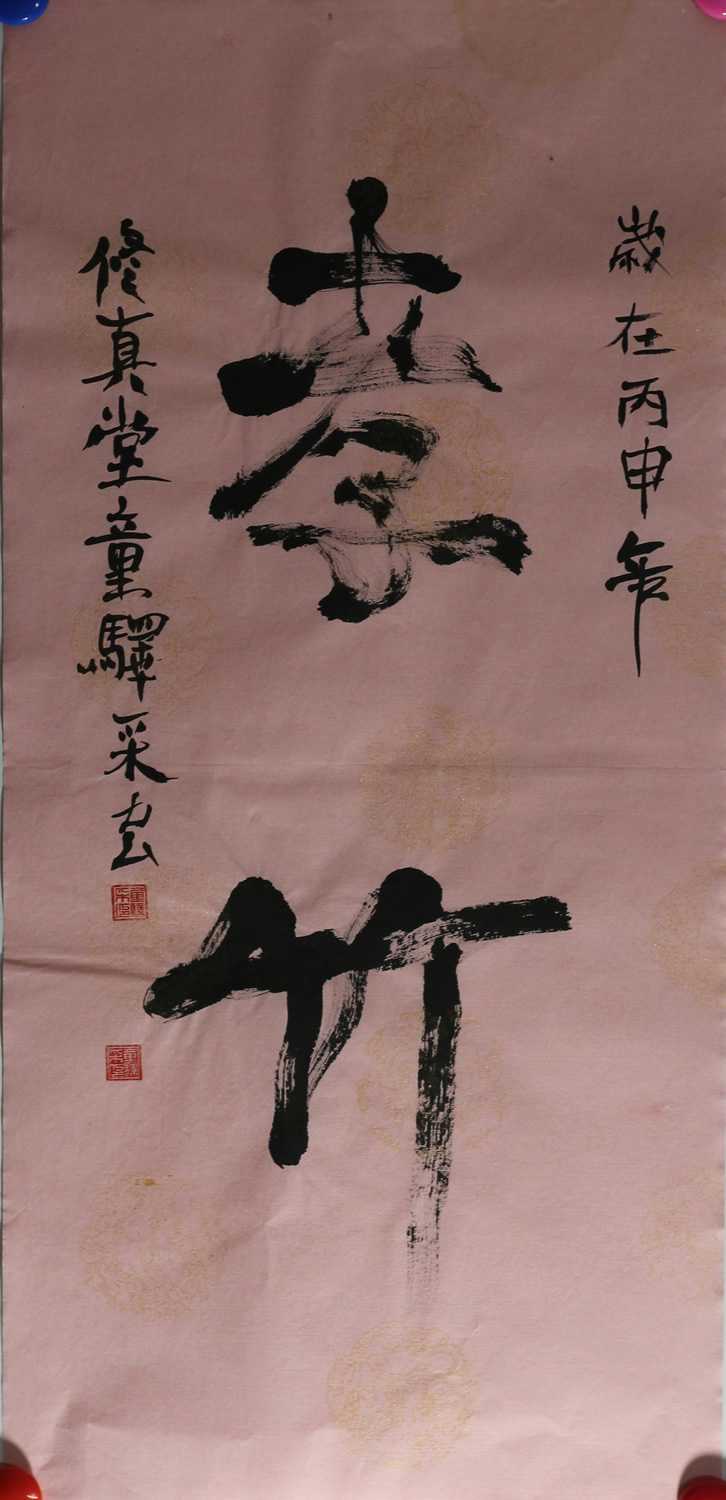 歲在丙申年
孝竹
修真堂童驛采書